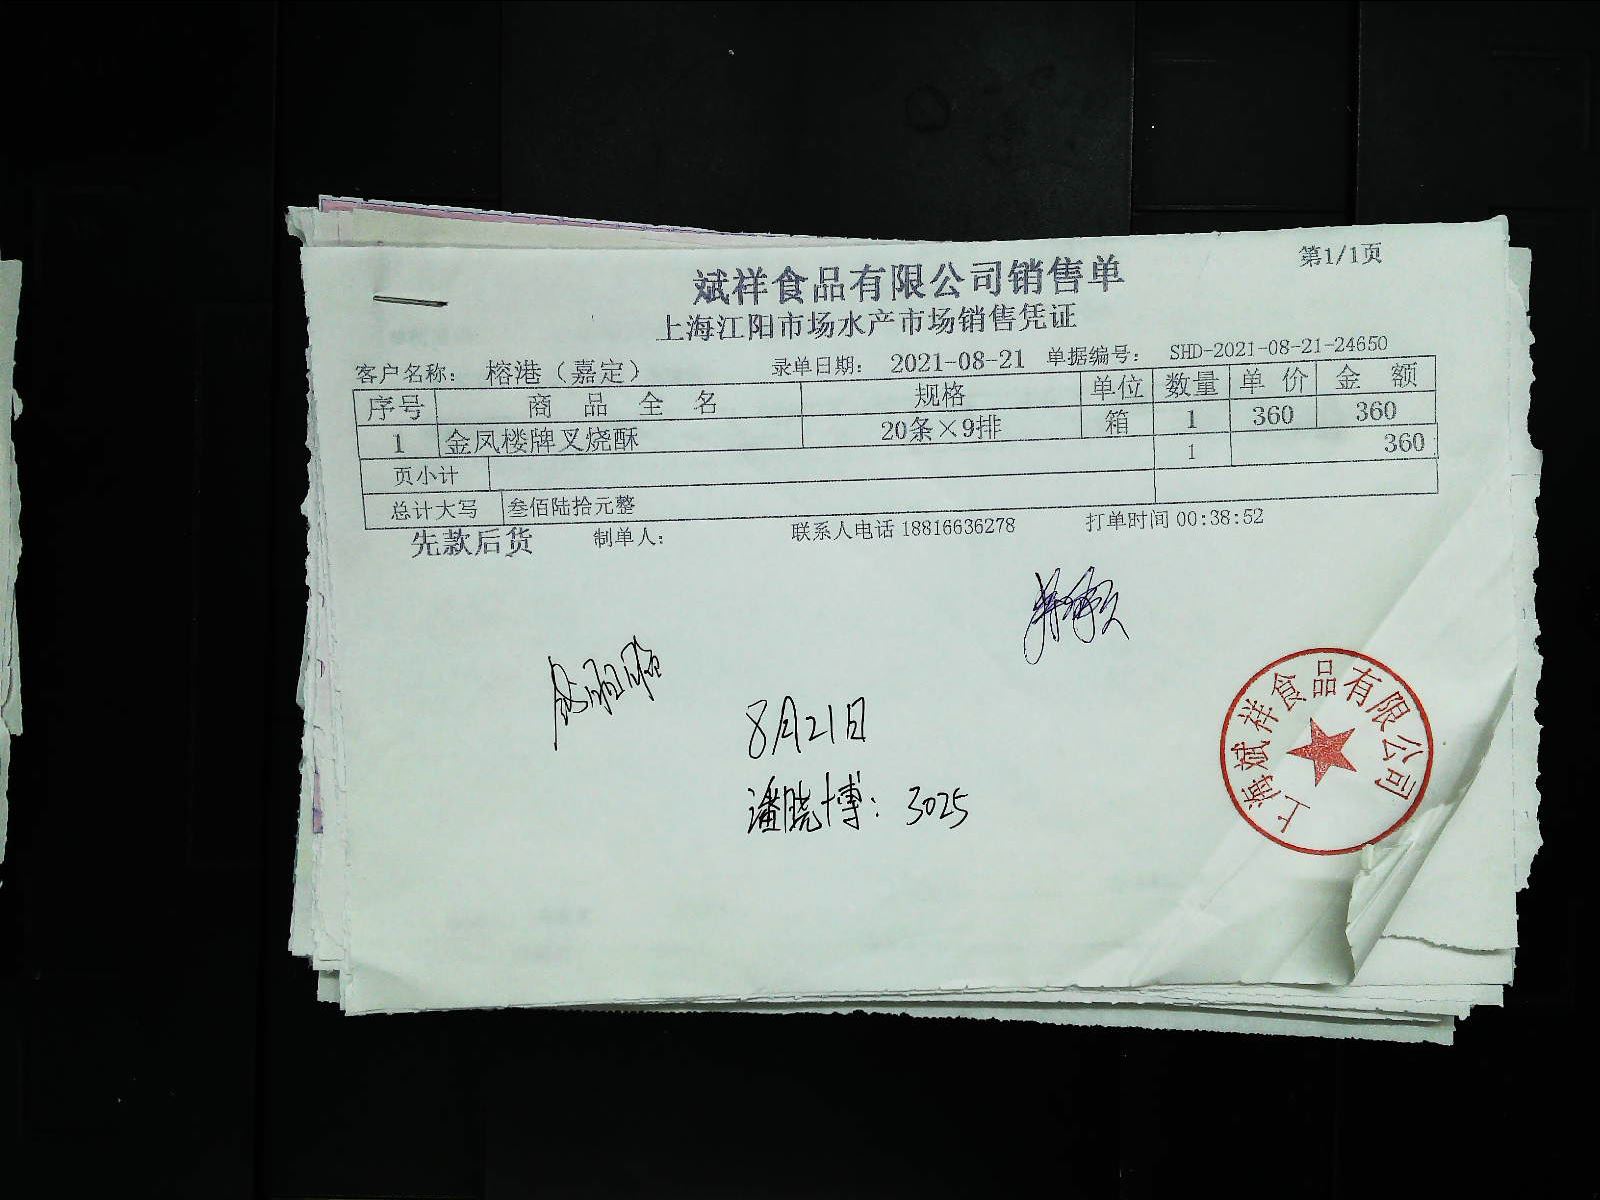 第1/1页
斌祥食品有限公司销售单
上海江阳市场水产市场销售凭证
客户名称： 榕港（嘉定） 录单日期： 2021-08-21 单据编号： SHD-2021-08-21-24650
序号 商品全名 规格 单位 数量 单价 金额
1 金凤楼牌叉烧酥 20条×9排 箱 1 360 360
页小计 1 360
总计大写 叁佰陆拾元整
先款后货 制单人： 联系人电话 18816636278 打单时间 00:38:52
8月21日
潘晓博： 3025
上海斌祥食品有限公司